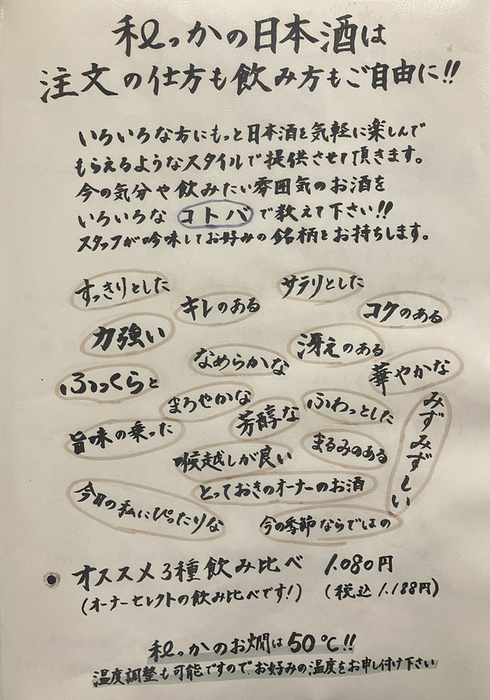 和えっかの日本酒は
注文の仕方も飲み方もご自由に!!
いろいろな方にもっと日本酒を気軽に楽しんで
もらえるようなスタイルで提供させて頂きます。
今の気分や飲みたい雰囲気のお酒を
いろいろな コトバ で教えて下さい!!
スタッフが吟味してお好みの銘柄をお持ちします。
すっきりとした
サラリとした
キレのある
コクのある
力強い
冴えのある
なめらかな
華やかな
ふっくらと
まろやかな
ふわっとした
芳醇な
みずみずしい
旨味の乗った
まるみのある
喉越しが良い
とっておきのオーナーのお酒
今日の私にぴったりな
今の季節ならではの
● オススメ3種飲み比べ 1.080円
(オーナーセレクトの飲み比べです!) (税込 1.188円)
和えっかのお燗は50℃!!
温度調整も可能ですので、お好みの温度をお申し付け下さい